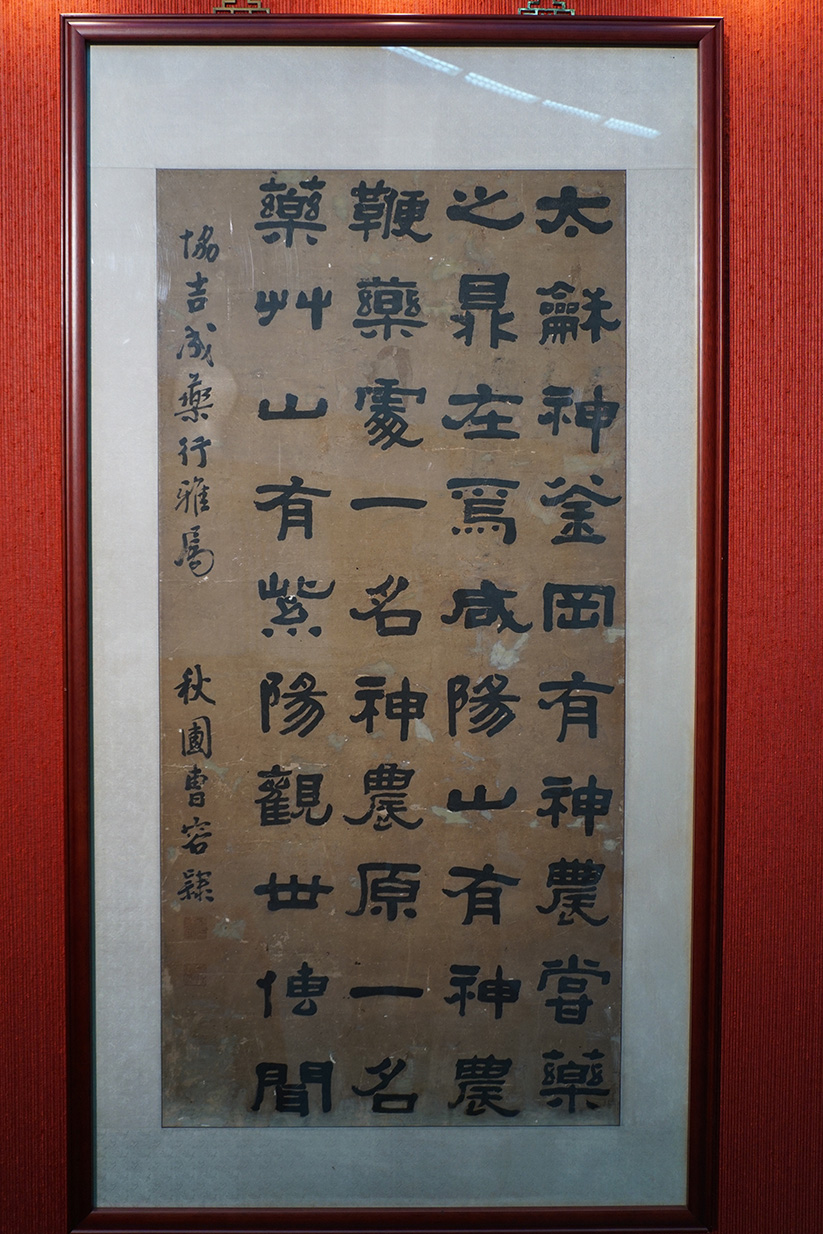 太龢神釜岡有神農嘗藥
之鼎在焉咸陽山有神農
鞭藥處一名神農原一名
藥艸山有紫陽觀世傳聞
協吉成藥行雅屬
秋圃曹容隸